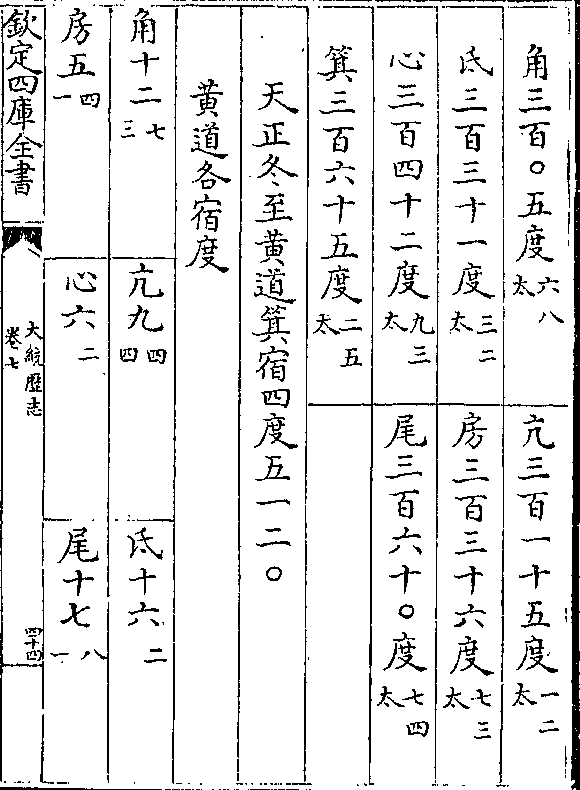 角三百〇五度六八太　亢三百一十五度一二太
氐三百三十一度三二太　房三百三十六度七三太
心三百四十二度九三太　尾三百六十〇度七四太
箕三百六十五度二五太
天正冬至黄道箕宿四度五一二〇
黄道各宿度
角十二七三　亢九四四　氐十六二
房五四一　心六二　尾十七八一
欽定四庫全書
大統歷志
卷七
四十四